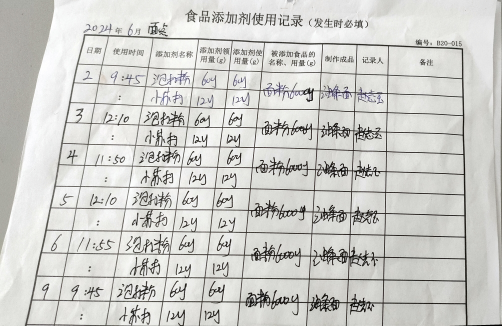 食品添加剂使用记录（发生时必填）
2024年6月 面点
编号：B20-015
日期 使用时间 添加剂名称 添加剂领用量(g) 添加剂使用量(g) 被添加食品的名称、用量(g) 制作成品 记录人 备注
2 9:45 泡打粉 60g 60g 面粉6000g 油条面
: 小苏打 12g 12g
3 12:10 泡打粉 60g 60g 面粉6000g 油条面
: 小苏打 12g 12g
4 11:50 泡打粉 60g 60g 面粉6000g 油条面
: 小苏打 12g 12g
5 12:10 泡打粉 60g 60g 面粉6000g 油条面
: 小苏打 12g 12g
6 11:55 泡打粉 60g 60g 面粉6000g 油条面
: 小苏打 12g 12g
9 9:45 泡打粉 60g 60g 面粉6000g 油条面
: 小苏打 12g 12g